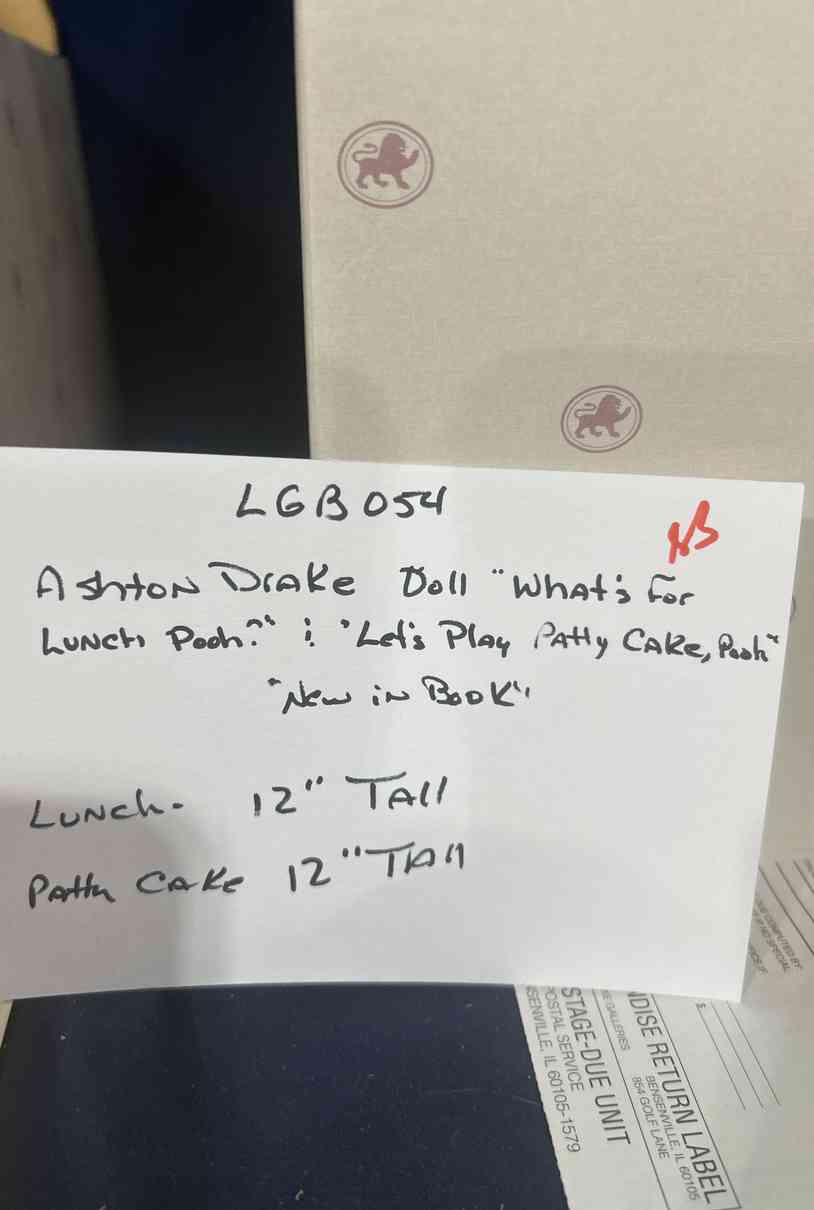 LGB054
NB
Ashton Drake Doll "What's For
Lunch Pooh?" & "Let's Play Patty Cake, Pooh"
"New in Book"
Lunch - 12" Tall
Patty Cake 12" Tall
DUE COMPUTED BY
IF NO SPECIAL
NDISE RETURN LABEL
BENSENVILLE, IL 60105
854 GOLF LANE
GALLERIES
STAGE-DUE UNIT
POSTAL SERVICE
SENVILLE, IL 60105-1579
$